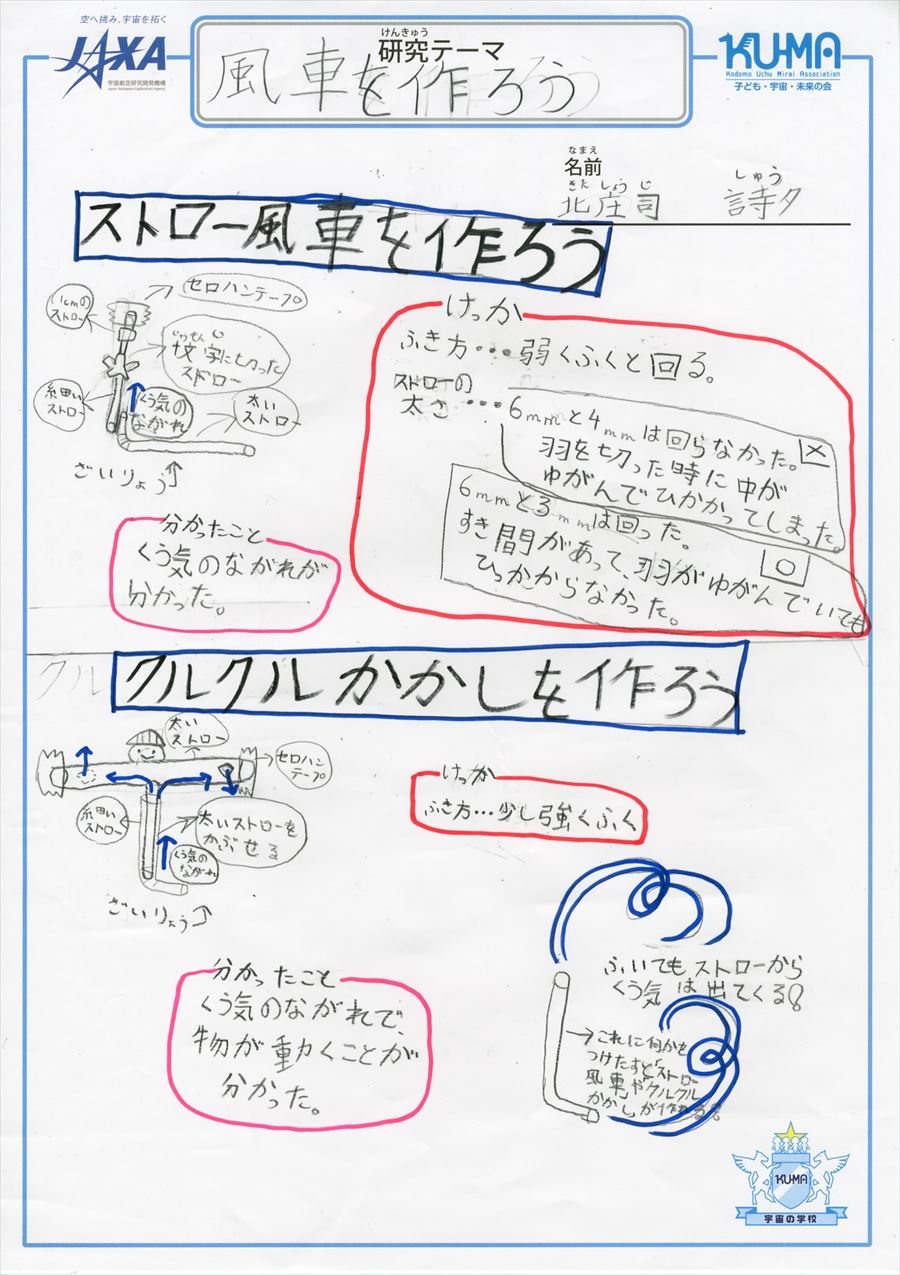 空へ挑み、宇宙を拓く
JAXA
宇宙航空研究開発機構
Japan Aerospace Exploration Agency
けんきゅう
研究テーマ
風車を作ろう
KU-MA
Kodomo Uchu Mirai Association
子ども・宇宙・未来の会
なまえ
名前
きた しょう じ しゅう
北庄司 詩夕
ストロー風車を作ろう
1cmの
ストロー
セロハンテープ
じゅうもんじ
十文字に切った
ストロー
細いストロー
くう気の
ながれ
太い
ストロー
ざいりょう
けっか
ふき方・・・弱くふくと回る。
ストローの
太さ・・・
6mmと4mmは回らなかった。
×
羽を切った時に中が
ゆがんでひかかってしまった。
6mmと3mmは回った。
○
すき間があって、羽がゆがんでいても
ひっかからなかった。
分かったこと
くう気のながれが
分かった。
クルクルかかしを作ろう
太い
ストロー
セロハン
テープ
細い
ストロー
太いストローを
かぶせる
くう気の
ながれ
ざいりょう
けっか
ふき方・・・少し強くふく
分かったこと
くう気のながれで、
物が動くことが
分かった。
ふいてもストローから
くう気は出てくる!
これに何かを
つけたすと「ストロー
風車」や「クルクル
かかし」が作れる!
KUMA
宇宙の学校